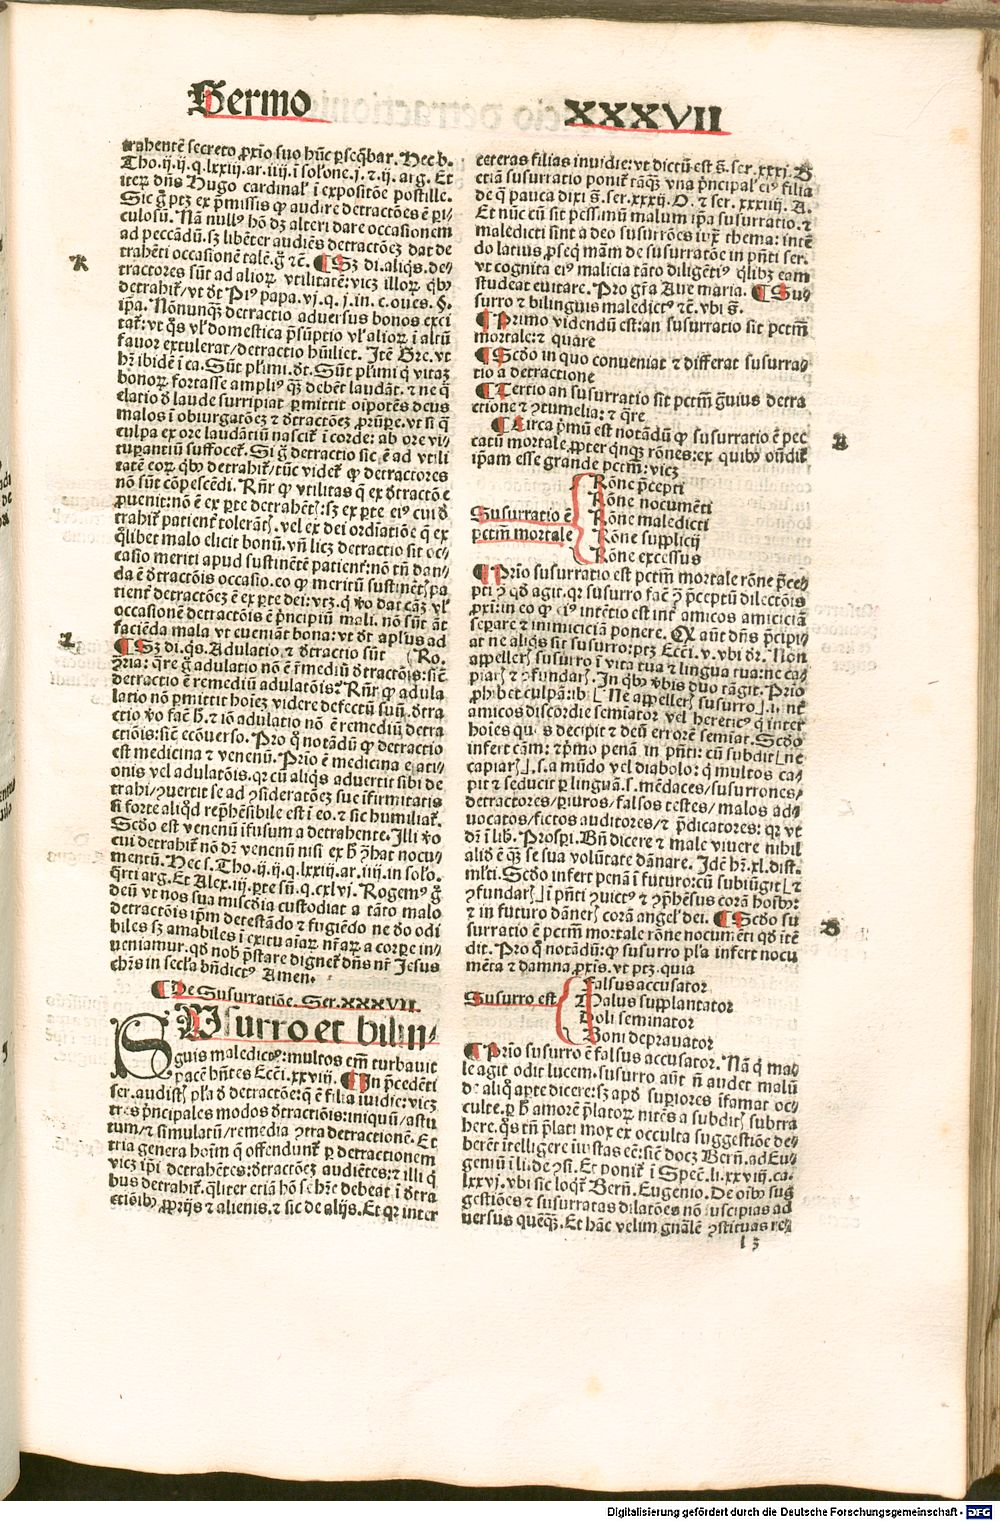 Sermo XXXVII
trahentē secreto ꝓxīo suo hūc ꝑseq̄bar. Hec b.
Tho. ij. ij. q. lxxiii. ar. iiij. ī solōne. j. ⁊ ij. arg. Et
iteꝝ dn̄s Hugo cardinal' ī expositōe postille.
Sic ḡ ptꝫ ex p̄missis ꝙ audire detractōes ē pi/
culosū. Nā null' hō dꝫ alteri dare occasionem
ad peccādū. sꝫ libēter audiēs detractōeꝫ dat de
trahēti occasionē talē. ḡ ⁊c̄. ¶ Sꝫ di. aliqs. de/
K
tractores sūt ad alioꝝ vtilitatē: vicꝫ illoꝝ qbꝰ
detrahit̄/ vt dr̄ Piꝰ papa. vj. q. j. in. c. oues. §.
ip̄a. Nōnunqꝫ detractio aduersus bonos exci
tat̄: vt qs vl' domestica p̄sūptio vl' alioꝝ ī altū
fauor extulerat/ detractio hūiliet. Itē Gre. vt
hr̄ ibidē ī ca. Sūt pl'imi. dt. Sūt pl'imi q vitaꝫ
bonoꝝ fortasse ampliꝰ qꝫ debēt laudāt. ⁊ ne q̄
elatio d̄ laude surripiat ꝑmittit oīpotēs deus
malos ī obiurgatōeꝫ ⁊ d̄tractōeꝫ prūpe. vt si q̄
culpa ex ore laudātiū nascit̄ ī corde: ab ore vi/
tuꝑantiū suffocet̄. Si ḡ detractio sic ē ad vtili
tatē eoꝝ qbꝰ detrahit̄/ tūc videt̄ ꝙ detractores
nō sūt cōpescēdi. Rn̄r ꝙ vtilitas q̄ ex d̄tractōe
ꝓuenit: nō ē ex ꝑte detrahēt: sꝫ ex ꝑte eiꝰ cui d̄
trahit̄ patient' tolerāt. vel ex dei ordīatiōe q̄ ex
q̄libet malo elicit bonū. vn̄ licꝫ detractio sit oc/
casio meriti apud sustinētē patient': nō tn̄ dan/
da ē d̄tractōis occasio. eo ꝙ meritū sustinēt pa
tient' detractōeꝫ ē ex ꝑte dei: vtꝫ. q v̄o dat cāꝫ vl'
occasionē detractōis ē p̄ncipiū mali. nō sūt āt
faciēda mala vt eueniāt bona: vt dt ap̄lus ad
L
¶ Sꝫ di. qs. Adulatio ⁊ d̄tractio sūt (Ro.
ꝯria: qre ḡ adulatio nō ē īmediū d̄tractōis: sic̄
detractio ē remediū adulatōis? Rn̄r ꝙ adula
latio nō ꝑmittit hoīeꝫ videre defectū suū. d̄tra
ctio v̄o facit h̄. ⁊ iō adulatio nō ē remediū detra
ctiōis: sic̄ ecōuerso. Pro q̄ notādū ꝙ detractio
est medicina ⁊ venenū. Prīo ē medicina elati/
onis vel adulatōis. qꝛ cū aliqs aduertit sibi de
trahi/ ꝯuertit se ad ꝯsideratōeꝫ sue īfirmitatis
si forte aliqd rep̄hēsibile est ī eo. ⁊ sic humiliat̄.
Scd̄o est venenū īfusum a detrahente. Illi v̄o
cui detrahit̄ nō dꝫ venenū nisi ex h̄ ꝯ̄hat nocu/
mentū. Hec s. Tho. ij. ij. q. lxxiij. ar. iiij. in solo.
q̄rti arg. Et Alex. iij. ꝑte sū. q. cxlvj. Rogemꝰ ḡ
deū vt nos sua mīscd̄ia custodiat a tāto malo
detractōis ip̄m detestādo ⁊ fugiēdo ne d̄o odi
biles sꝫ amabiles ī exitu aīaꝝ nr̄aꝝ a corꝑe in/
ueniamur. qd̄ nob̄ p̄stare dignet̄ dn̄s nr̄ Jesus
chr̄s in secl'a bn̄dictꝰ Amen.
¶ De Susurratiōe. Ser. XXXVII
SUsurro et bilin/
guis maledictꝰ: multos em̄ turbauit
pacē hn̄tes Ecc̄i. xxviij. ¶ In p̄cedēti
ser. audistꝭ pl'a d̄ detractōe: q̄ ē filia īuidie: vicꝫ
tres p̄ncipales modos d̄tractiōis: iniquū/ astu
tum/ ⁊ simulatū/ remedia ꝯtra detractionē. Et
tria genera hoīm q̄ offendunt̄ ꝑ detractionem
vicꝫ ip̄i detrahētes: d̄tractōeꝫ audiētes: ⁊ illi q
bus detrahit̄. qlīter etiā hō se hr̄e debeat ī d̄tra
ctiōibꝰ ꝓprijs ⁊ alienis. ⁊ sic de alijs. Et qꝛ inter
ceteras filias inuidie: vt dictū est s̄. ser. xxxj. B
etiā susurratio ponit̄ tāqꝫ vna p̄ncipal' eiꝰ filia
de q̄ pauca dixi s̄. ser. xxxij. O. ⁊ ser. xxxiij. A.
Et nūc cū sit pessimū malum ip̄a susurratio. ⁊
maledicti sint a deo susurrōes iuxꝭ thema: intē
do latiꝰ ꝓseq̄ mām de susurratōe in pn̄ti ser.
vt cognita eiꝰ malicia tāto diligētiꝰ qlibꝫ eam
studeat euitare. Pro gr̄a Aue maria. ¶ Su/
surro ⁊ bilinguis maledictꝰ ⁊c̄. vbi s̄.
¶ Primo videndū est: an susurratio sit pctm̄
mortale: ⁊ quare
¶ Scd̄o in quo conueniat ⁊ differat susurra/
tio a detractione
¶ Tertio an susurratio sit pctm̄ ḡuius detra
ctione ⁊ ꝯtumelia: ⁊ q̄re
A
¶ Circa p̄mū est notādū ꝙ susurratio ē pec
catū mortale ꝓpter qnqꝫ rōnes: ex quibꝰ on̄dit̄
ip̄am esse grande pctm̄: vicꝫ
Susurratio ē pctm̄ mortale
Rōne p̄cepti
Rōne nocumēti
Rōne maledicti
Rōne supplicij
Rōne excessus
¶ Prīo susurratio est pctm̄ mortale rōne p̄ce/
pti ꝯ qd̄ agit. qꝛ susurro facit ꝯ p̄ceptū dilectōis
ꝓxī: in eo ꝙ eiꝰ intētio est int̄ amicos amiciciā
seꝑare ⁊ inimiciciā ponere. Qꝫ aūt dn̄s p̄cipi/
at ne aliqs sit susurro: ptꝫ Ecc̄i. v. vbi dr̄. Non
appellerꝭ susurro ī vita tua ⁊ lingua tua: ne ca/
piarꝭ ⁊ ꝯfundarꝭ. In qbꝰ v̄bis duo tāgit. Prīo
ꝓhibet culpā: ibi [Ne appellerꝭ susurro]. i. int̄
amicos discordie semiator vel hereticꝰ q̄ inter
hoīes quos decipit ⁊ deū errorē semiat. Scd̄o
infert cām: ⁊ p̄mo penā in pn̄ti: cū subdit [ne
capiarꝭ]. s. a mūdo vel diabolo: q̄ multos ca/
pit ⁊ seducit ꝑ linguā. s. mēdaces/ susurrones/
detractores/ ꝑiuros/ falsos testes/ malos ad/
uocatos/ fictos auditores/ ⁊ p̄dicatores: qꝛ vt
dꝫ ī lib. Prospi. Bn̄ dicere ⁊ male viuere nihil
aliud ē qꝫ se sua volūtate dānare. Idē hr̄. xl. dist.
ml'ti. Scd̄o infert penā ī futuro: cū subiūgit [⁊
ꝯfundarꝭ] ī pn̄ti ꝯuictꝰ ⁊ ꝯp̄hēsus corā hoībꝰ:
⁊ in futuro dānerꝭ corā angel' dei. ¶ Scd̄o su
B
surratio ē pctm̄ mortale rōne nocumēti qd̄ itē
dit. Pro q̄ notādū: ꝙ susurro pl'a infert nocu
mēta ⁊ damna ꝓxīs. vt ptꝫ. quia
Susurro est
Falsus accusator
Malus supplantator
Doli seminator
Boni deprauator
¶ Prīo susurro ē falsus accusator. Nā q̄ ma/
le agit odit lucem. susurro aūt n̄ audet malū
de aliq̄ aꝑte dicere: sꝫ apd̄ suꝑiores īfamat oc/
culte. ꝑ h̄ amorē p̄latoꝝ nitēs a subditꝭ subtra
here. qs tn̄ p̄lati mox ex occulta suggestiōe de/
berēt ītelligere iniustas eē: sic̄ docꝫ Bern̄. ad Eu/
geniū ī li. de ꝯsi. Et ponit̄ ī Spec̄. li. xxviij. ca.
lxxvj. vbi sic loqt̄ Bern̄. Eugenio. De oībꝰ sug
gestiōes ⁊ susurratas dilatōes nō suscipias ad
uersus quēqꝫ. Et hāc velim gn̄alē ꝯstituas re/
l 3
Digitalisierung gefördert durch die Deutsche Forschungsgemeinschaft - DFG